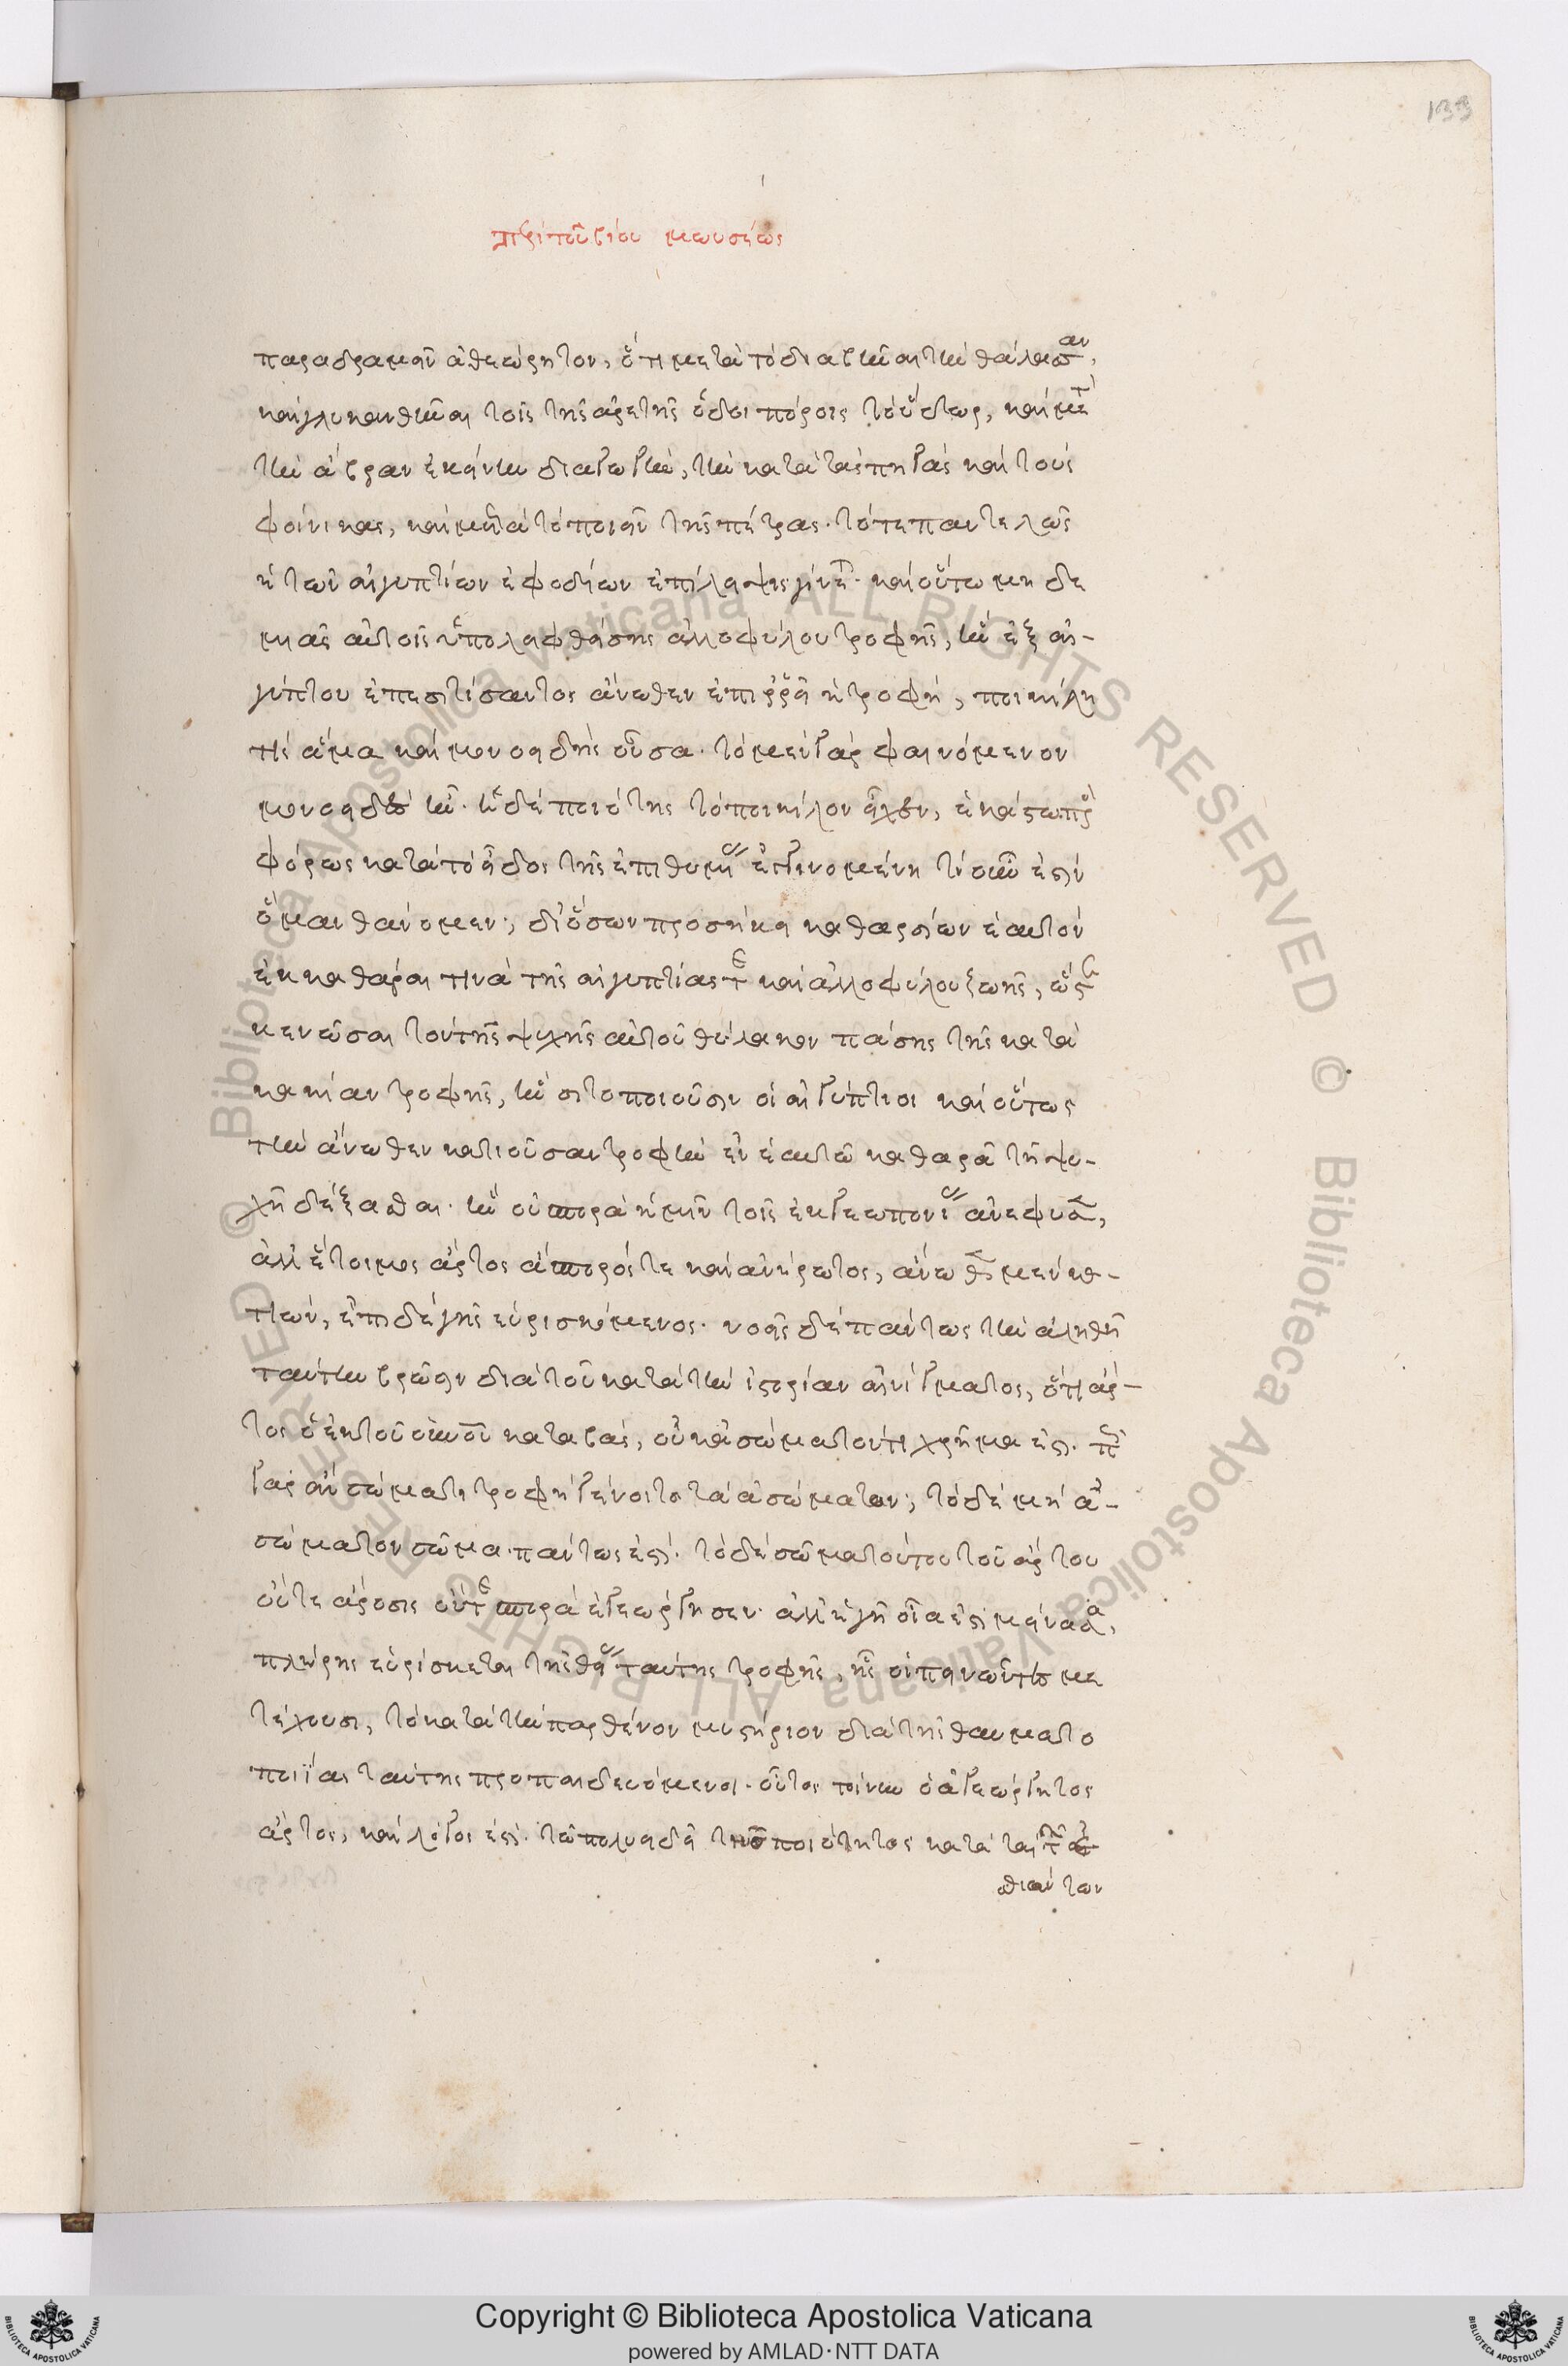 133
περὶ τοῦ βίου μωυσέως
παραδραμεῖν ἀθεώρητον, ὅτι μετὰ τὸ διαβῆναι τὴν θάλασσαν,
καὶ γλυκανθῆναι τοῖς τῆς ἀρετῆς ὁδοιπόροις τὸ ὕδωρ, καὶ μετὰ
τὴν ἁβρὰν ἐκείνην διαγωγὴν, τὴν κατὰ τὰς πηγὰς καὶ τοὺς
φοίνικας, καὶ μετὰ τὸ πιεῖν τῆς πέτρας. τότε παντελῶς
ἡ τῶν αἰγυπτίων ἐφοδίων ἐπίληψις γίνεται. καὶ οὕτω μηδε
μιᾶς αὐτοῖς ὑπολειφθείσης ἀλλοφύλου τροφῆς, ἣν ἐξ αἰ-
γύπτου ἐπεσιτίσαντος ἄνωθεν ἐπιρρεῖ ἡ τροφὴ, ποικίλη
τὶς ἅμα καὶ μονοειδὴς οὖσα. τὸ μὲν γὰρ φαινόμενον
μονοειδὲς ἦν. ἡ δὲ ποιότης τὸ ποικίλον εἶχεν, ἑκάστω προς
φόρως κατὰ τὸ εἶδος τῆς ἐπιθυμίας ἐγγινομένη τί οὖν ἐστιν
ὃ μανθάνομεν; δι ὅσων προσήκει καθαρσίων ἑαυτὸν
ἐκκαθᾶραι τινὰ τῆς αἰγυπτίας τε καὶ ἀλλοφύλου ζωῆς, ὥστε
κενῶσαι τὸν τῆς ψυχῆς αὐτοῦ θύλακον πάσης τῆς κατὰ
κακίαν τροφῆς, ἣν σιτοποιοῦσιν οἱ αἰγύπτιοι καὶ οὕτως
τὴν ἄνωθεν κατιοῦσαν τροφὴν ἐν ἑαυτῶ καθαρᾶ τῆ ψυ-
χῆ δέξασθαι. ἣν οὐ σπορὰ ἡμῖν τοῖς ἐκ γεωπονίας ἀνεφυσεν,
ἀλλ ἕτοιμος ἄρτος ἄσπορός τε καὶ ἀνήροτος, ἄνωθεν μὲν κα-
τιὼν, ἐπὶ δὲ γῆς εὑρισκόμενος. νοεῖς δὲ πάντως τὴν ἀληθῆ
ταύτην βρῶσιν διὰ τοῦ κατὰ τὴν ἱστορίαν αἰνίγματος, ὅτι ἄρ-
τος ὁ ἐκ τοῦ οὐρανοῦ καταβὰς, οὐκ ἀσώματόν τι χρῆμα ἐστι. πῶς
γὰρ ἂν σώματι τροφὴ γένοιτο τὰ ἀσώματον; τὸ δὲ μὴ ἀ-
σώματον σῶμα πάντως ἐστὶ. τὸ δὲ σῶμα τούτου τοῦ ἄρτου
οὔτε ἄροσις οὔτε σπορὰ ἐγεώργησεν. ἀλλ ἡ γῆ οἵα ἐστὶ μείνασα,
πλήρης εὑρίσκεται τῆς θείας ταύτης τροφῆς, ἧς οἱ πεινῶντες με
τέχουσι, τὸ κατὰ τὴν παρθένον μυστήριον διὰ τῆς θαυματο
ποιΐας ταύτης προπαιδευόμενοι. οὗτος τοίνυν ὁ ἀγεώργητος
ἄρτος, καὶ λόγος ἐστὶ. τῶ πολυειδεῖ ποιότητος κατὰ
σθιόντων
Copyright © Biblioteca Apostolica Vaticana
powered by AMLAD·NTT DATA